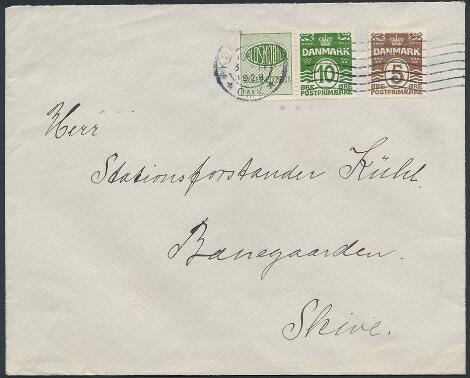 OLDSMOBILE
DANMARK
10
ØRE ØRE
POSTFRIMÆRKE
DANMARK
5
ØRE ØRE
POSTFRIMÆRKE
OMK
Herr
Stationsforstander Kühl.
Banegaarden.
Skive.